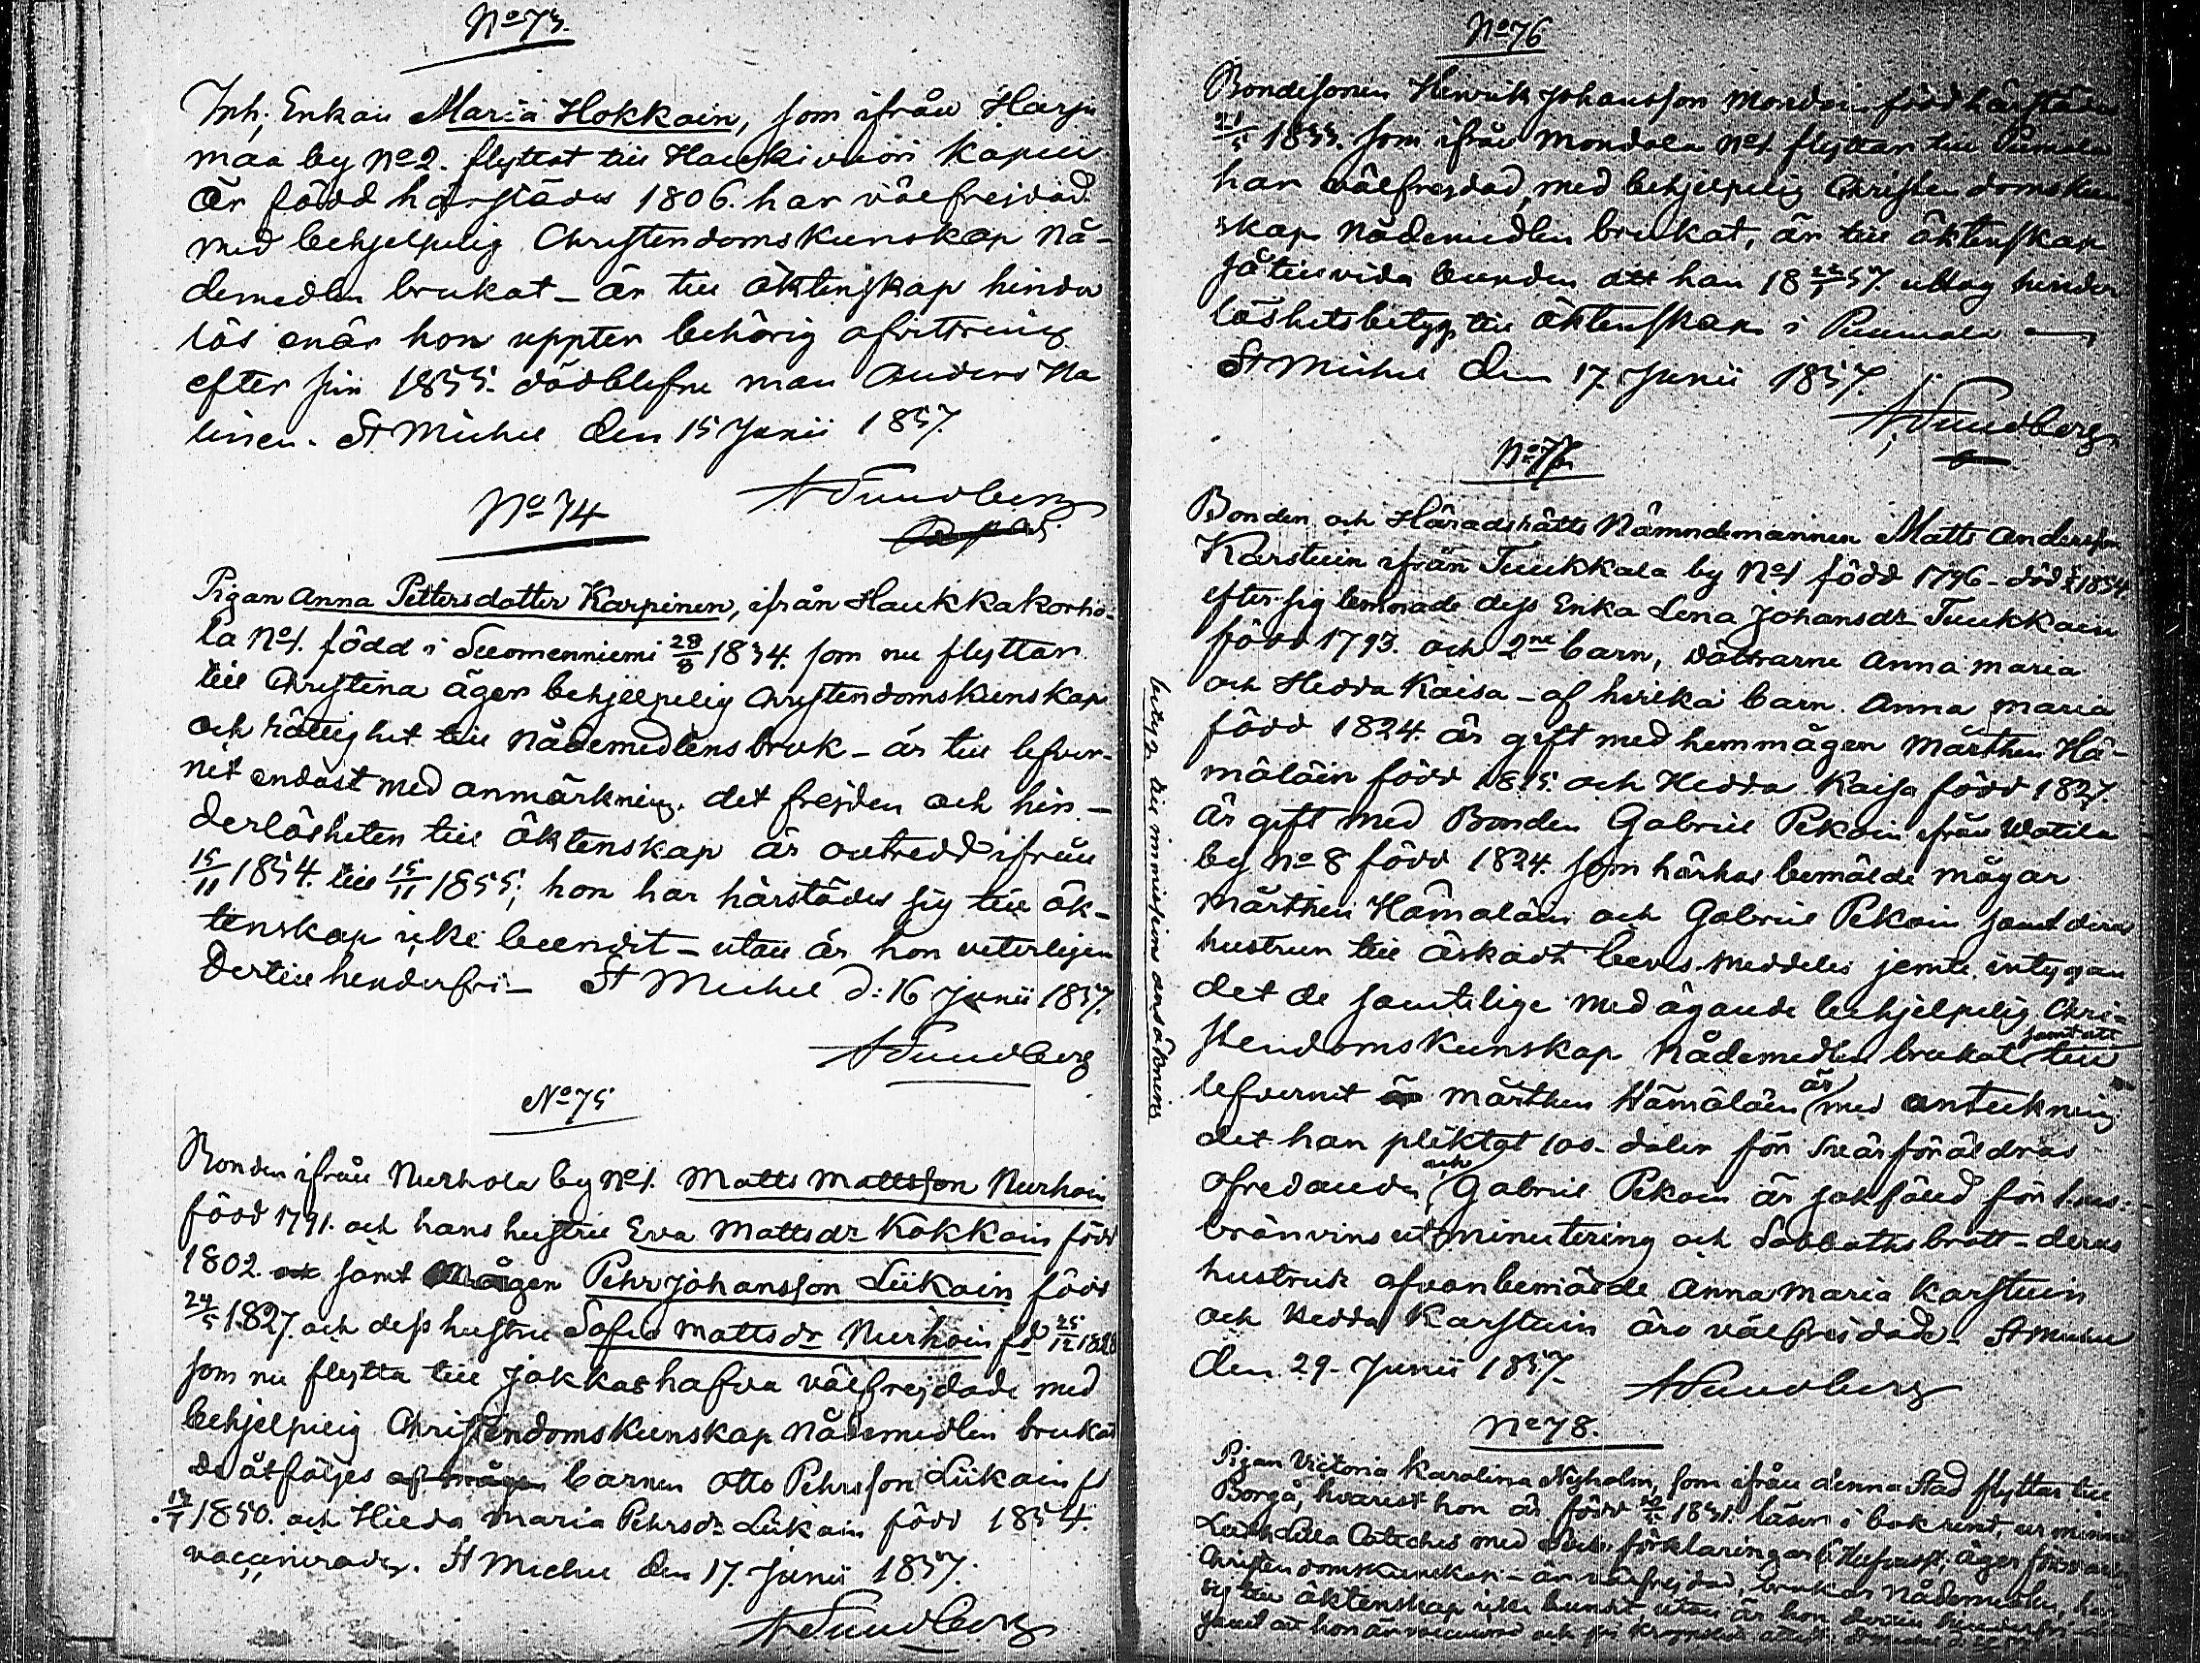 No 73.
Inh. Enkan Maria Hokkain, som ifrån Harju
maa by No 2. flyttat till Haukivuori Kapell
är född härstädes 1806. har välfrejdad
med behjelpelig Christendomskunskap Nå-
demedlen brukat – är till äktenskap hinder
lös enär hon uppter behörig afvittring
efter sin 1855. dödblefne man Anders Na
linen. St Michel den 15 Junii 1857.
A Sundberg
No 74
Pigan Anna Pettersdotter Karpinen, ifrån Haukkakorho-
la No 1. född i Suomenniemi 28/8 1834. som nu flyttar
till Christina äger behjelpelig Christendomskunskap
och rättighet till Nådemedlens bruk – är till lefver-
net endast med anmärkning. det frejden och hin-
derlösheten till äktenskap är outredd ifrån
15/11 1854. till 15/11 1855; hon har härstädes sig till äk-
tenskap icke bundit – utan är hon veterligen
dertill henderfri – St Michel d: 16 Junii 1857.
A Sundberg
No 75
Bonden ifrån Nurhola by No 1. Matts Mattsson Nurhoin
född 1791. och hans hustru Eva Mattsdr Kokkoin född
1802. samt Mågen Pehr Johansson Liikain född
24/5 1827. och dess hustru Sofia Mattsdr Nurhoin fd 25/12 1828
som nu flytta till Jokkas hafva välfrejdade med
behjelpelig Christendomskunskap Nådemedlen brukat
De åtföljes af mågen barnen Otto Pehrsson Liikain fd
/7 1850. och Hedda Maria Pehrsdr Liikain född 1854.
vaccinerade. St Michel den 17. Junii 1857.
A Sundberg
No 76
Bondesonen Henrik Johansson Mondoin född härstädes
21/5 1833. som ifrån Mondola No 1 flyttar till Pumala
har välfrejdad, med behjelpelig Christendomskun-
skap Nådemedlen brukat, är till äktenskap
såtillvida bunden att han 18 22/1 57. uttog hinder
löshetsbetyg till äktenskap i Puumala
St Michel den 17. Junii 1857.
A Sundberg
No 77.
Bonden och Häradsrätts Nämndemannen Matts Andersson
Karstuin ifrån Tuukkala by No 1 född 1796 – död 1854
efter sig lemnade dess Enka Lena Johansdr Tuukkain
född 1793. och 2ne barn, döttrarne Anna Maria
och Hedda Kaisa – af hvilka barn Anna Maria
född 1824. är gift med hemmågen Mårthen Hä-
mäläin född 1815. och Hedda Kaisa född 1827.
är gift med Bonden Gabriel Pekoin ifrån Watila
by No 8 född 1824. som härhos bemälde mågar
Mårthen Hämäläin och Gabriel Pekoin samt deras
hustrur till äskadt bevis meddeles jemte intygan
det de samtelige med ägande behjelpelig Chri-
stendomskunskap Nådemedlen brukat samt att till
lefvernet Mårthen Hämäläin är med anteckning
det han pliktat 100 daler för svärföräldras
ofredande, och Gabriel Pekoin är sakfälld för
bränvins utminutering och Sabbathsbrott – deras
hustrur ofvanbemälde Anna Maria Karstuin
och Hedda Karstuin äro välfrejdade – St Michel
den 29. Junii 1857.
A Sundberg
betyg till inmission ansökning
No 78.
Pigan Victoria Karolina Nyholm, som ifrån denna Stad flyttar till
Borgå, hvarest hon är född 1831. läser i bok rent, ur minnet
Luth. Lilla Catechis med förklaringar äger
Christendomskunskap – är välfrejdad, brukar Nådemedlen, har
sig till äktenskap icke bundit, utan är hon dertill hinderfri
samt att hon är vaccinerad och